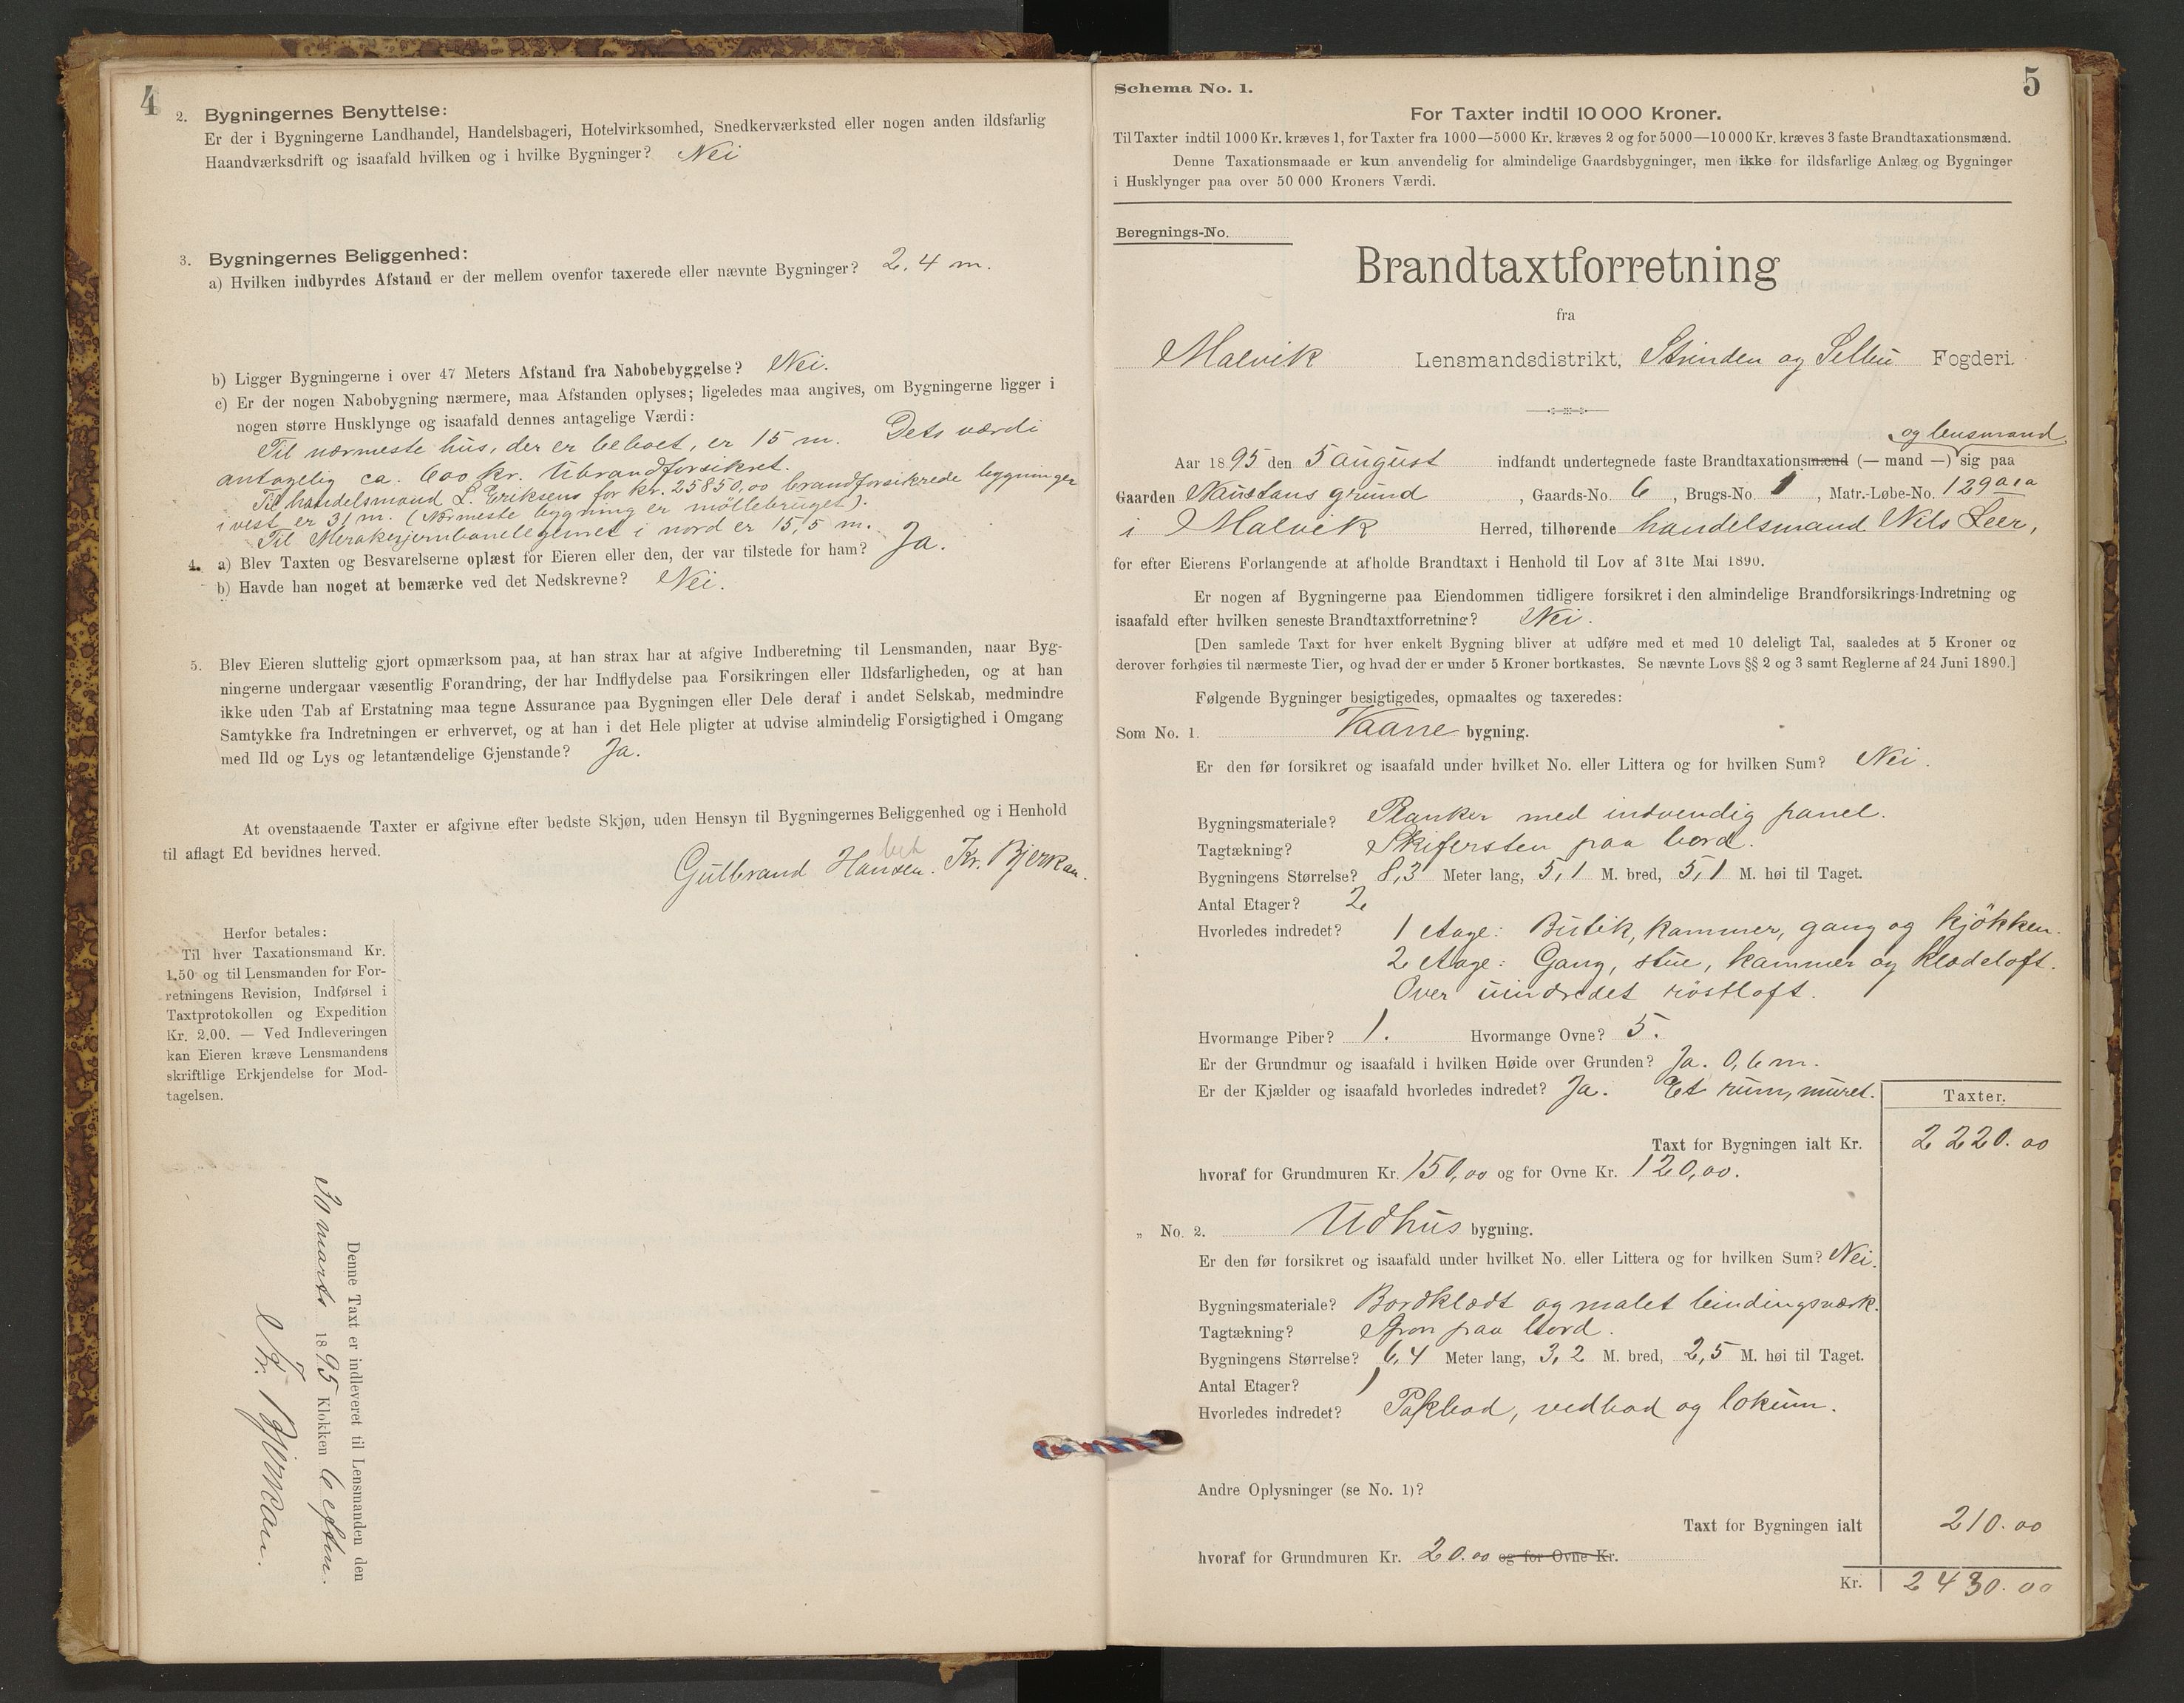 4
2. Bygningernes Benyttelse:
Er der i Bygningerne Landhandel, Handelsbageri, Hotelvirksomhed, Snedkerværksted eller nogen anden ildsfarlig
Haandværksdrift og isaafald hvilken og i hvilke Bygninger? Nei
3. Bygningernes Beliggenhed:
a) Hvilken indbyrdes Afstand er der mellem ovenfor taxerede eller nævnte Bygninger? 2,4 m.
b) Ligger Bygningerne i over 47 Meters Afstand fra Nabobebyggelse? Nei.
c) Er der nogen Nabobygning nærmere, maa Afstanden oplyses; ligeledes maa angives, om Bygningerne ligger i
nogen større Husklynge og isaafald dennes antagelige Værdi:
Til nærmeste hus, der er beboet, er 15 m. Dets værdi
antagelig ca. 600 kr. Ubrandforsikret.
Til handelsmand L. Eriksens for kr. 25850,00 brandforsikrede bygninger
i vest er 31 m. (Nærmeste bygning er möllebruget).
Til Merakerjernbanelegemet i nord er 15,5 m.
4. a) Blev Taxten og Besvarelserne oplæst for Eieren eller den, der var tilstede for ham? Ja.
b) Havde han noget at bemærke ved det Nedskrevne? Nei.
5. Blev Eieren sluttelig gjort opmærksom paa, at han strax har at afgive Indberetning til Lensmanden, naar Byg-
ningerne undergaar væsentlig Forandring, der har Indflydelse paa Forsikringen eller Ildsfarligheden, og at han
ikke uden Tab af Erstatning maa tegne Assurance paa Bygningen eller Dele deraf i andet Selskab, medmindre
Samtykke fra Indretningen er erhvervet, og at han i det Hele pligter at udvise almindelig Forsigtighed i Omgang
med Ild og Lys og letantændelige Gjenstande? Ja.
At ovenstaaende Taxter er afgivne efter bedste Skjøn, uden Hensyn til Bygningernes Beliggenhed og i Henhold
til aflagt Ed bevidnes herved.
Gulbrand Hansen. Kr. Bjerkan.
Herfor betales:
Til hver Taxationsmand Kr.
1.50 og til Lensmanden for For-
retningens Revision, Indførsel i
Taxtprotokollen og Expedition
Kr. 2.00. — Ved Indleveringen
kan Eieren kræve Lensmandens
skriftlige Erkjendelse for Mod-
tagelsen.
Denne Taxt er indleveret til Lensmanden den
marts 1895 Klokken 6 eftm.
Kr. Bjerkan.
5
Schema No. 1.
For Taxter indtil 10 000 Kroner.
Til Taxter indtil 1000 Kr. kræves 1, for Taxter fra 1000—5000 Kr. kræves 2 og for 5000—10 000 Kr. kræves 3 faste Brandtaxationsmænd.
Denne Taxationsmaade er kun anvendelig for almindelige Gaardsbygninger, men ikke for ildsfarlige Anlæg og Bygninger
i Husklynger paa over 50 000 Kroners Værdi.
Beregnings-No.
Brandtaxtforretning
fra
Malvik Lensmandsdistrikt, Strinden og Selbu Fogderi.
og lensmand
Aar 1895 den 5 august indfandt undertegnede faste Brandtaxationsmænd (— mand —) sig paa
Gaarden Naustans grund, Gaards-No. 6, Brugs-No. 1, Matr.-Løbe-No. 129a1a
i Malvik Herred, tilhørende handelsmand Nils Leer,
for efter Eierens Forlangende at afholde Brandtaxt i Henhold til Lov af 31te Mai 1890.
Er nogen af Bygningerne paa Eiendommen tidligere forsikret i den almindelige Brandforsikrings-Indretning og
isaafald efter hvilken seneste Brandtaxtforretning? Nei.
[Den samlede Taxt for hver enkelt Bygning bliver at udføre med et med 10 deleligt Tal, saaledes at 5 Kroner og
derover forhøies til nærmeste Tier, og hvad der er under 5 Kroner bortkastes. Se nævnte Lovs §§ 2 og 3 samt Reglerne af 24 Juni 1890.]
Følgende Bygninger besigtigedes, opmaaltes og taxeredes:
Som No. 1. Vaane bygning.
Er den før forsikret og isaafald under hvilket No. eller Littera og for hvilken Sum? Nei.
Bygningsmateriale? Planker med indvendig panel.
Tagtækning? Skifersten paa bord.
Bygningens Størrelse? 8,3 Meter lang, 5,1 M. bred, 5,1 M. høi til Taget.
Antal Etager? 2
Hvorledes indredet? 1 Etage: Butik, kammer, gang og kjökken.
2 Etage: Gang, stue, kammer og klædeloft.
Over uindredet röstloft.
Hvormange Piber? 1. Hvormange Ovne? 5.
Er der Grundmur og isaafald i hvilken Høide over Grunden? Ja. 0,6 m.
Er der Kjælder og isaafald hvorledes indredet? Ja. Et rum, muret.
Taxter.
Taxt for Bygningen ialt Kr. 2220.00
hvoraf for Grundmuren Kr. 150,00 og for Ovne Kr. 120,00.
„ No. 2. Udhus bygning.
Er den før forsikret og isaafald under hvilket No. eller Littera og for hvilken Sum? Nei.
Bygningsmateriale? Bordklædt og malet bindingsværk.
Tagtækning? Spon paa bord.
Bygningens Størrelse? 6,4 Meter lang, 3,2 M. bred, 2,5 M. høi til Taget.
Antal Etager? 1
Hvorledes indredet? Pakbod, vedbod og lokum.
Andre Oplysninger (se No. 1)?
Taxt for Bygningen ialt 210.00
hvoraf for Grundmuren Kr. 20.00 og for Ovne Kr.
Kr. 2430.00